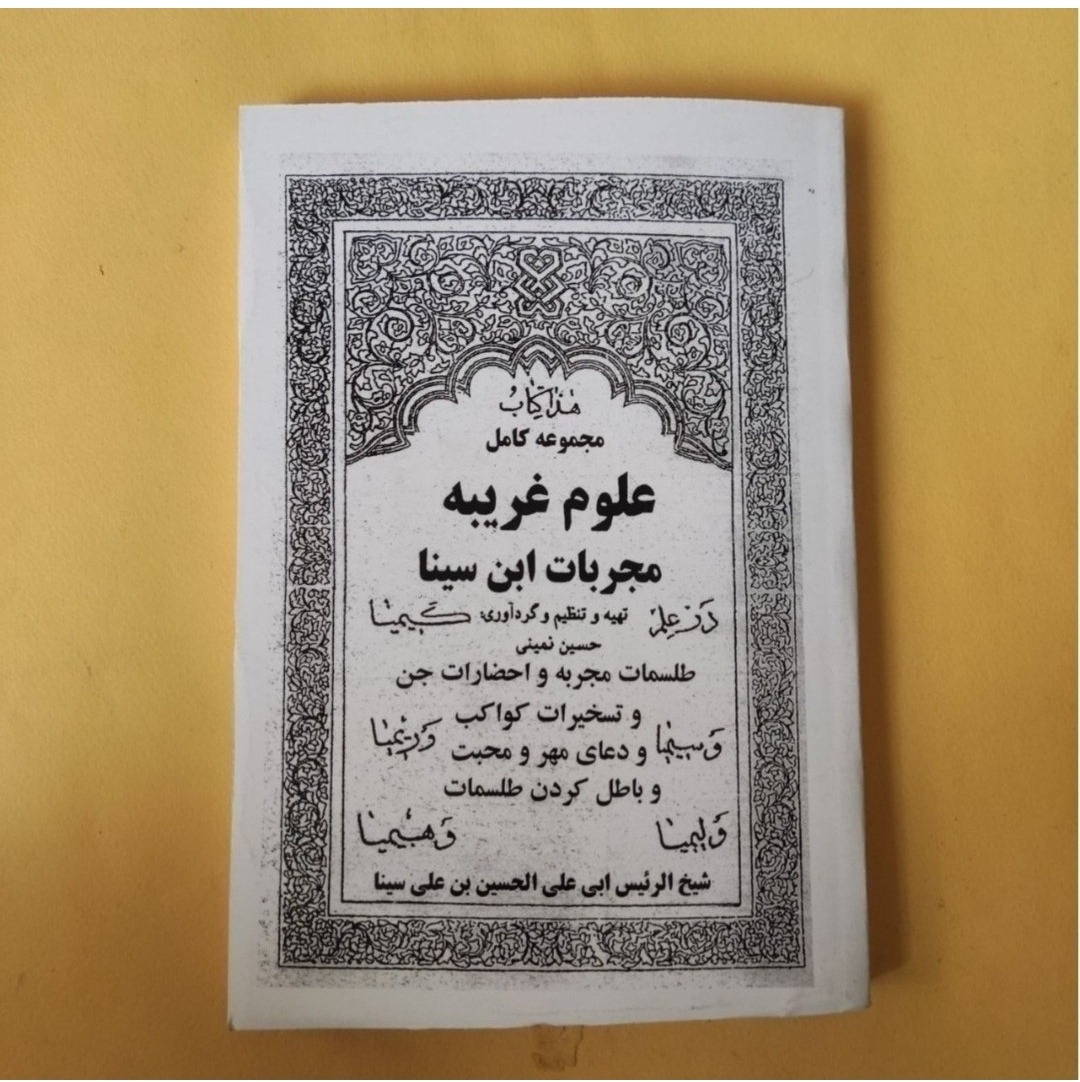 هذا كتاب
مجموعه کامل
علوم غریبه
مجربات ابن سینا
در علم تهیه و تنظیم و گردآوری: کیمیا
حسین نمینی
طلسمات مجربه و احضارات جن
و تسخیرات کواکب
و سیمیا و دعای مهر و محبت و ریمیا
و باطل کردن طلسمات
و لیمیا و هیمیا
شیخ الرئیس ابی علی الحسین بن علی سینا